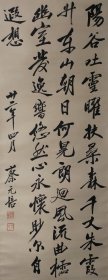 陽谷吐靈曜扶桑森千丈朱霞
升東山朝日何晃朗迴風流曲櫺
幽室發逸響悠然心永懷眇爾自
遐想 廿二年四月 蔡元培